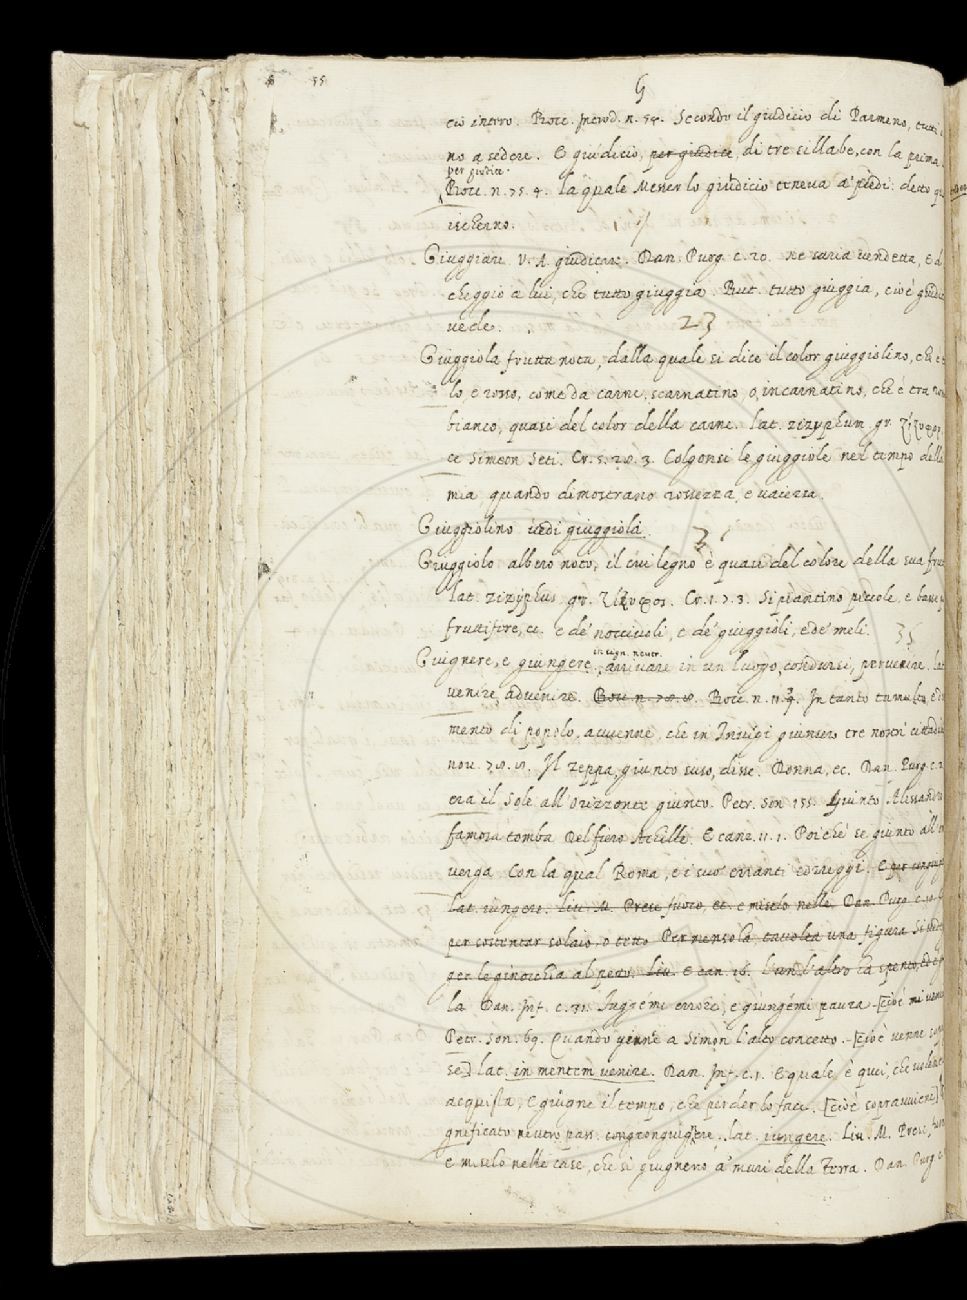 55
G
ciò intero. Bocc. Introd. n. 54. Secondo il giudicio di Parmeno, tutti
no a sedere. E giudicio, per giudice, di tre sillabe, con la prima
per giudice.
Bocc. n. 75. 4. la quale Messer lo giudicio teneva a' piedi. detto
ischerno.
Giuggiare V. A. giudicare. Dan. Purg. c. 20. ne saria vendetta, E
cheggio a lui, che tutto giuggia. But. tutto giuggia, cioè
vede.
23
Giuggiola frutta nota, dalla quale si dice il color giuggiolino, che è
lo, e rosso, come da carne, scarnatino, o, incarnatino, che è tra
bianco, quasi del color della carne. lat. zizyphum gr.
ce Simeon Seti. Cr. 5. 28. 3. Colgonsi le giuggiole nel tempo della
mia quando dimostrano rossezza, e vaiezza.
Giuggiolino vedi giuggiola.
3
Giuggiolo albero noto, il cui legno è quasi del colore della sua
lat. zizyphus gr. ζίζυφος. Cr. 1. 7. 3. Si piantino piccole, e basse
fruttifere, ec. e de' nocciuoli, e de' giuggioli, e de' meli.
35
in sign. neutr.
Giugnere, e giungere, arrivare in un luogo, condursi, pervenire. lat
venire, advenire. Bocc. n. 78. 8. Bocc. n. 11. 3. In tanto tumulto, e
mento di popolo, avvenne, che in Trivigi giunsero tre nostri cittadini
nov. 78. 8. Il Zeppa, giunto suso, disse. Donna, ec. Dan. Purg. c. 2
era il Sole all' Orizzonte giunto. Petr. Son. 155. Giunto Alessandro
famosa tomba Del fiero Achille. E canz. 11. 1. Poichè se' giunto all'
verga Con la qual Roma, e i suo' erranti correggi. E per
lat. iungere. Liv. M. Prese fuoco, ec. e miselo nelle Dan. Purg. c. 10.
per sostentar solaio, o tetto Per mensola, tavolta una figura Si
ger le ginocchia al petto. Liv. E can. 16. l'un l'altro ha spento, ed è
la Dan. Inf. c. 31. Fuggémi errore, e giungémi paura - [cioè mi
Petr. Son. 69. Quando giunse a Simon l'alto concetto. - [cioè venne
se] lat. in mentem venire. Dan. Inf. c. 1. E quale è quei, che
acquista, E giugne il tempo, che perder lo face. [cioè sopravviene]
gnificato neutro pass. congiungere. lat. iungere. Liv. M. Prese,
e miselo nelle case, che si giugnero a' muri della Terra. Dan. Purg. c.